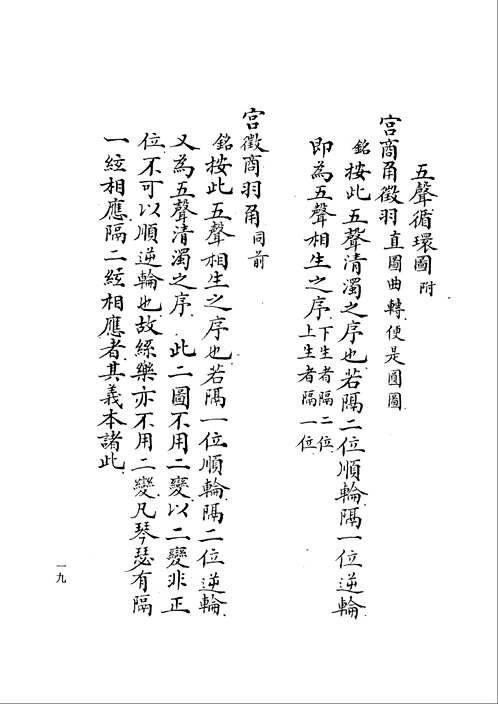 五聲循環圖附
宮商角徵羽直圖曲轉便是圓圖
銘按此五聲清濁之序也若隔二位順輪隔一位逆輪
即為五聲相生之序下生者隔二位上生者隔一位
宮徵商羽角同前
銘按此五聲相生之序也若隔一位順輪隔二位逆輪
又為五聲清濁之序此二圖不用二變以二變非正
位不可以順逆輪也故絲樂亦不用二變凡琴瑟有隔
一絃相應隔二絃相應者其義本諸此
一九